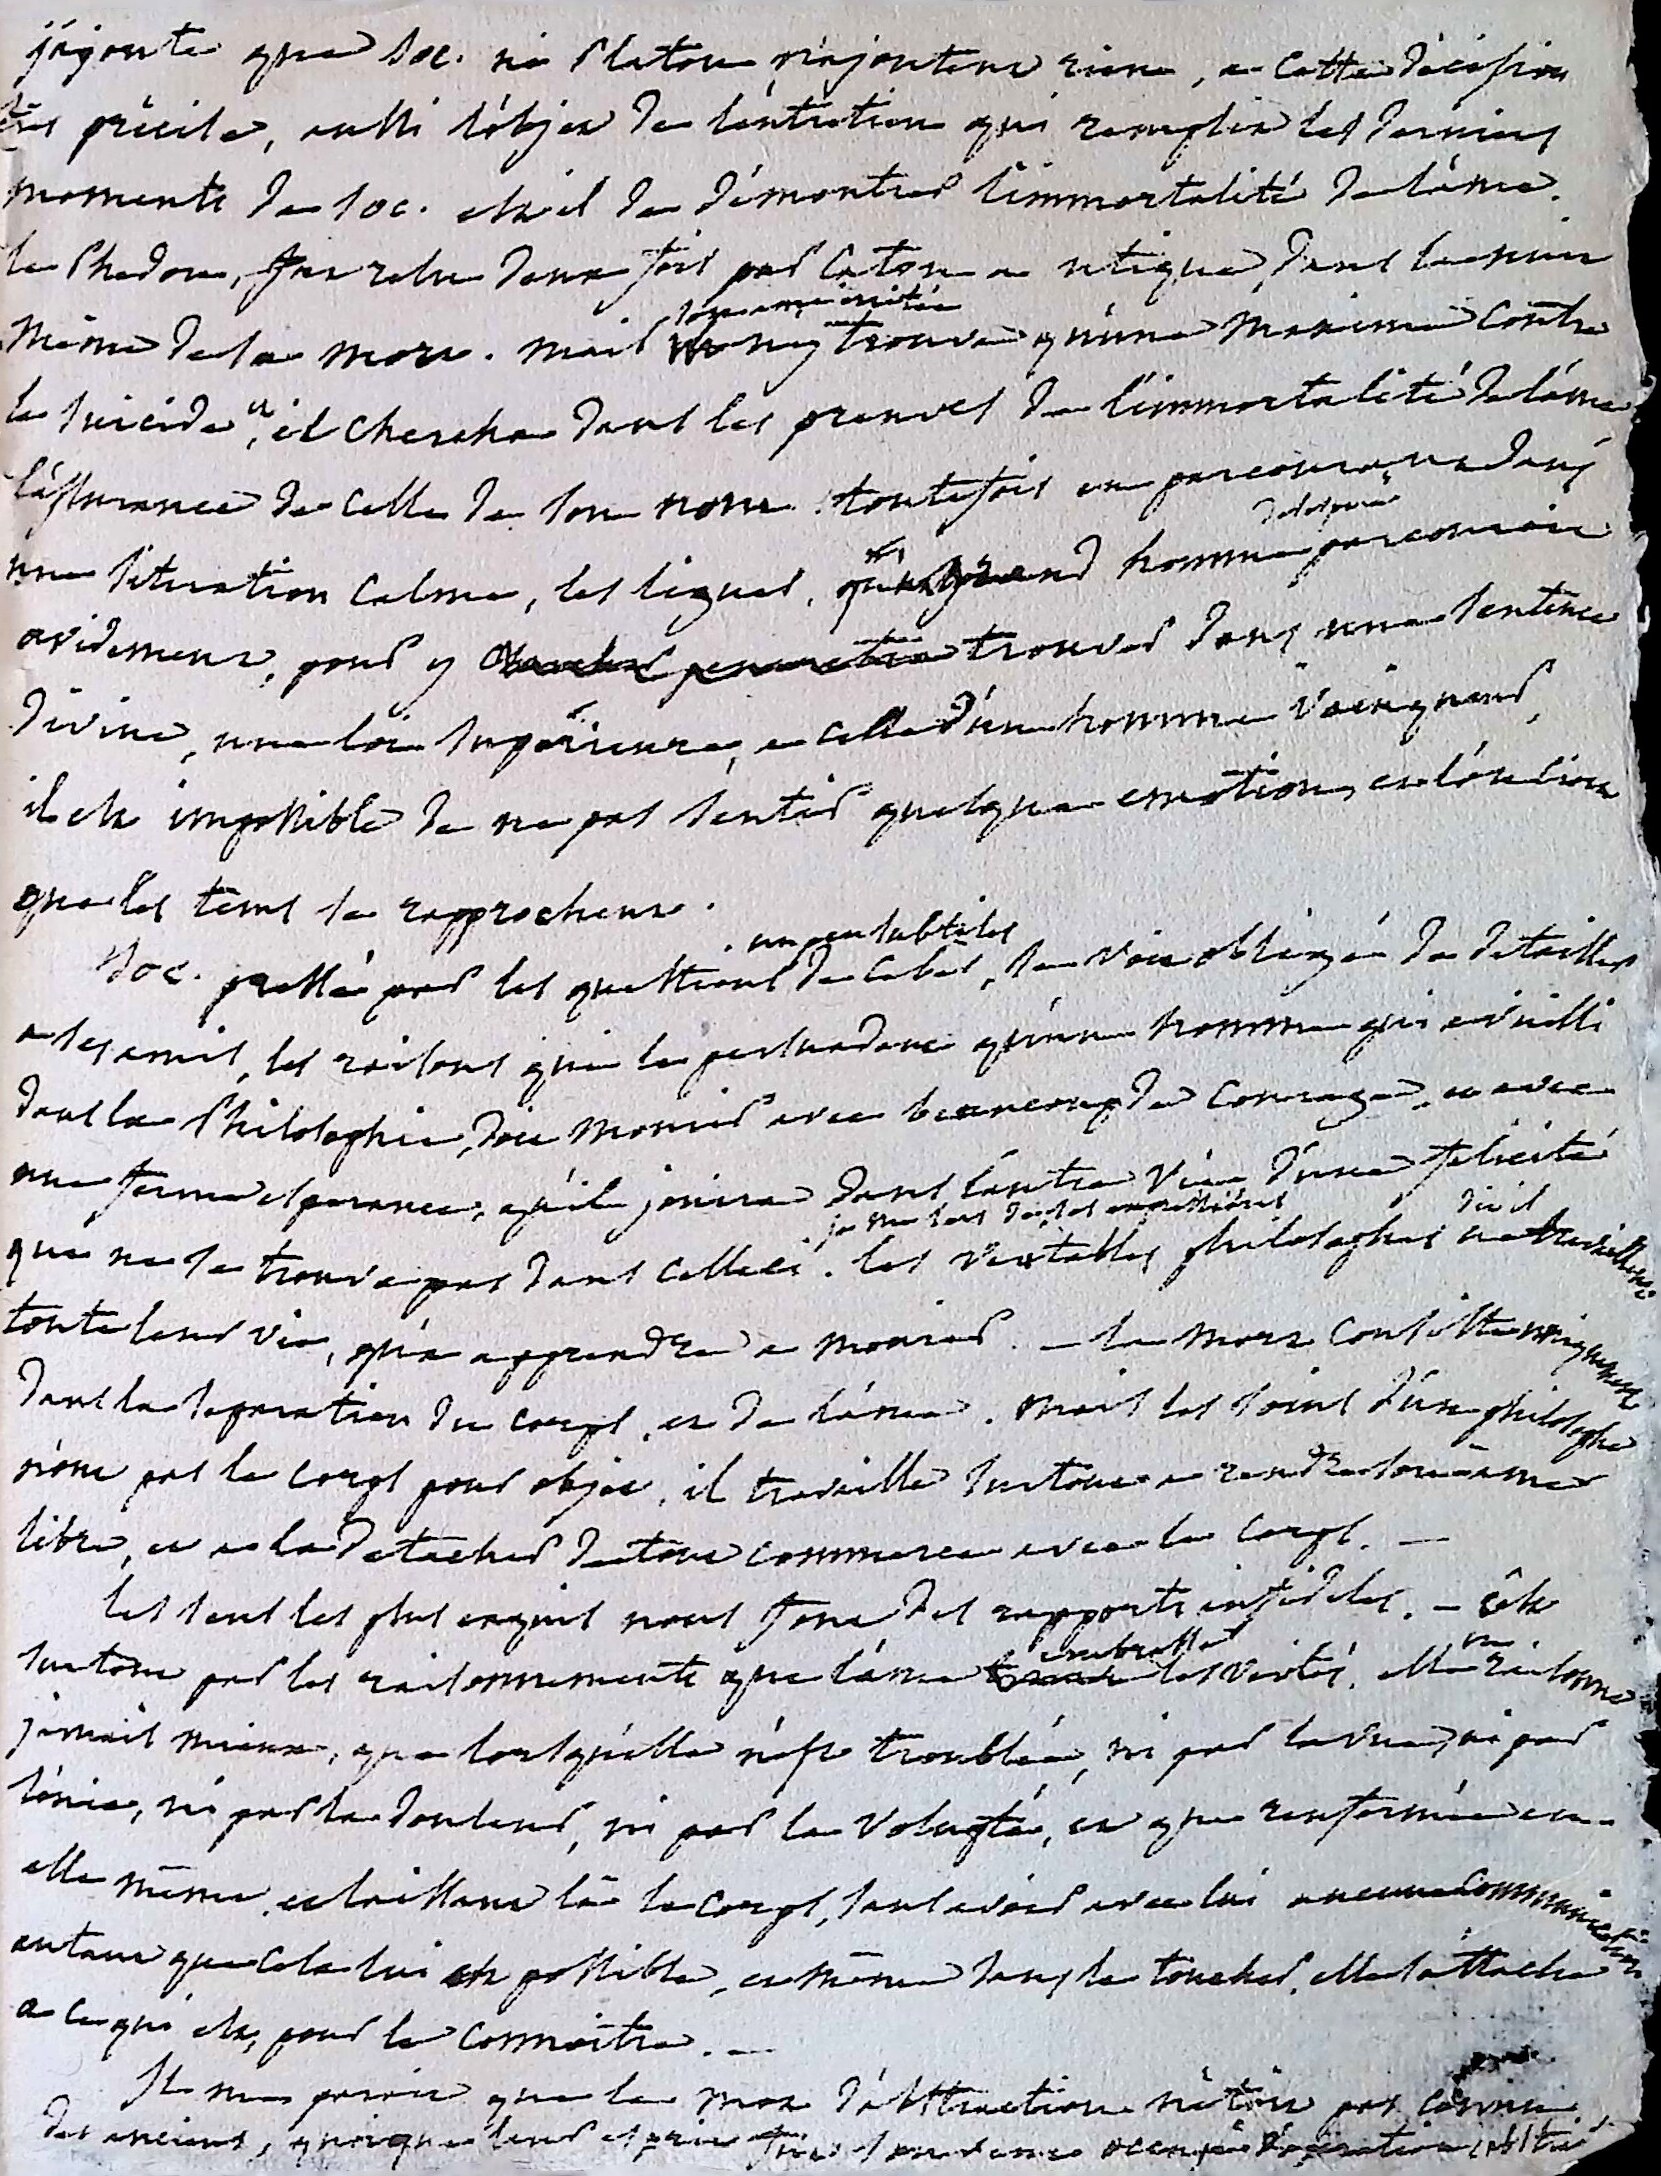 j'ajoute que Soc. ni Platon n'ajoutent rien, a cette décision
très précise, aussi l'objet de l'entretien qui remplit les derniers
moments de Soc. est il de démontrer l'immortalité de l'âme.
le Phedon, fut relu deux fois par Caton a utique, dans la nuit
même de sa mort. mais son ame irritée n'y trouva qu'une maxime contre
le suicide, et il chercha dans les preuves de l'immortalité de l'âme
l'assurance de celle de son nom. toutefois en parcourant dans
une situation calme, les lignes, qu'un grand homme désespéré parcourait
avidement, pour y trouver dans une sentence
divine, une loi supérieure, a celle d'un homme vainqueur,
il est impossible de ne pas sentir quelque emotion, et l'on diroit
que les tems se rapprochent.
Soc. pressé par les questions un peu subtiles de Cebès, se voit obligé de detailler
a ses amis, les raisons qui le persuadent qu'un homme qui a vieilli
dans la Philosophie, doit mourir avec beaucoup de courage, et avec
une ferme esperance, qu'il jouira dans l'autre vie d'une felicité
qui ne se trouve pas dans celle ci. je me sers de ses expressions les veritables philosophes dit il ne travaillent
toute leur vie, qu'a apprendre a mourir. — la mort consiste uniquement
dans la separation du corps, et de l'âme. mais les soins d'un philosophe
n'ont pas le corps pour objet, il travaille surtout a rendre son âme
libre, et a la detacher de tout commerce avec le corps. —
les sens les plus exquis nous font des rapports infideles. — c'est
surtout par les raisonnements que l'âme embrasse les vérités. elle ne raisonne
jamais mieux, que lorsqu'elle n'est troublée, ni par la vue, ni par
l'ouie, ni par la douleur, ni par la volupté, et que renfermée en
elle même, et laissant là le corps, sans avoir avec lui aucune communication
autant que cela lui est possible, et même sans le toucher, elle s'attache
a ce qui est, pour le connoitre. —
Il me paroit que le mot d'abstraction n'étoit pas connu
des anciens, quoique leur esprit fut occupé d'operations